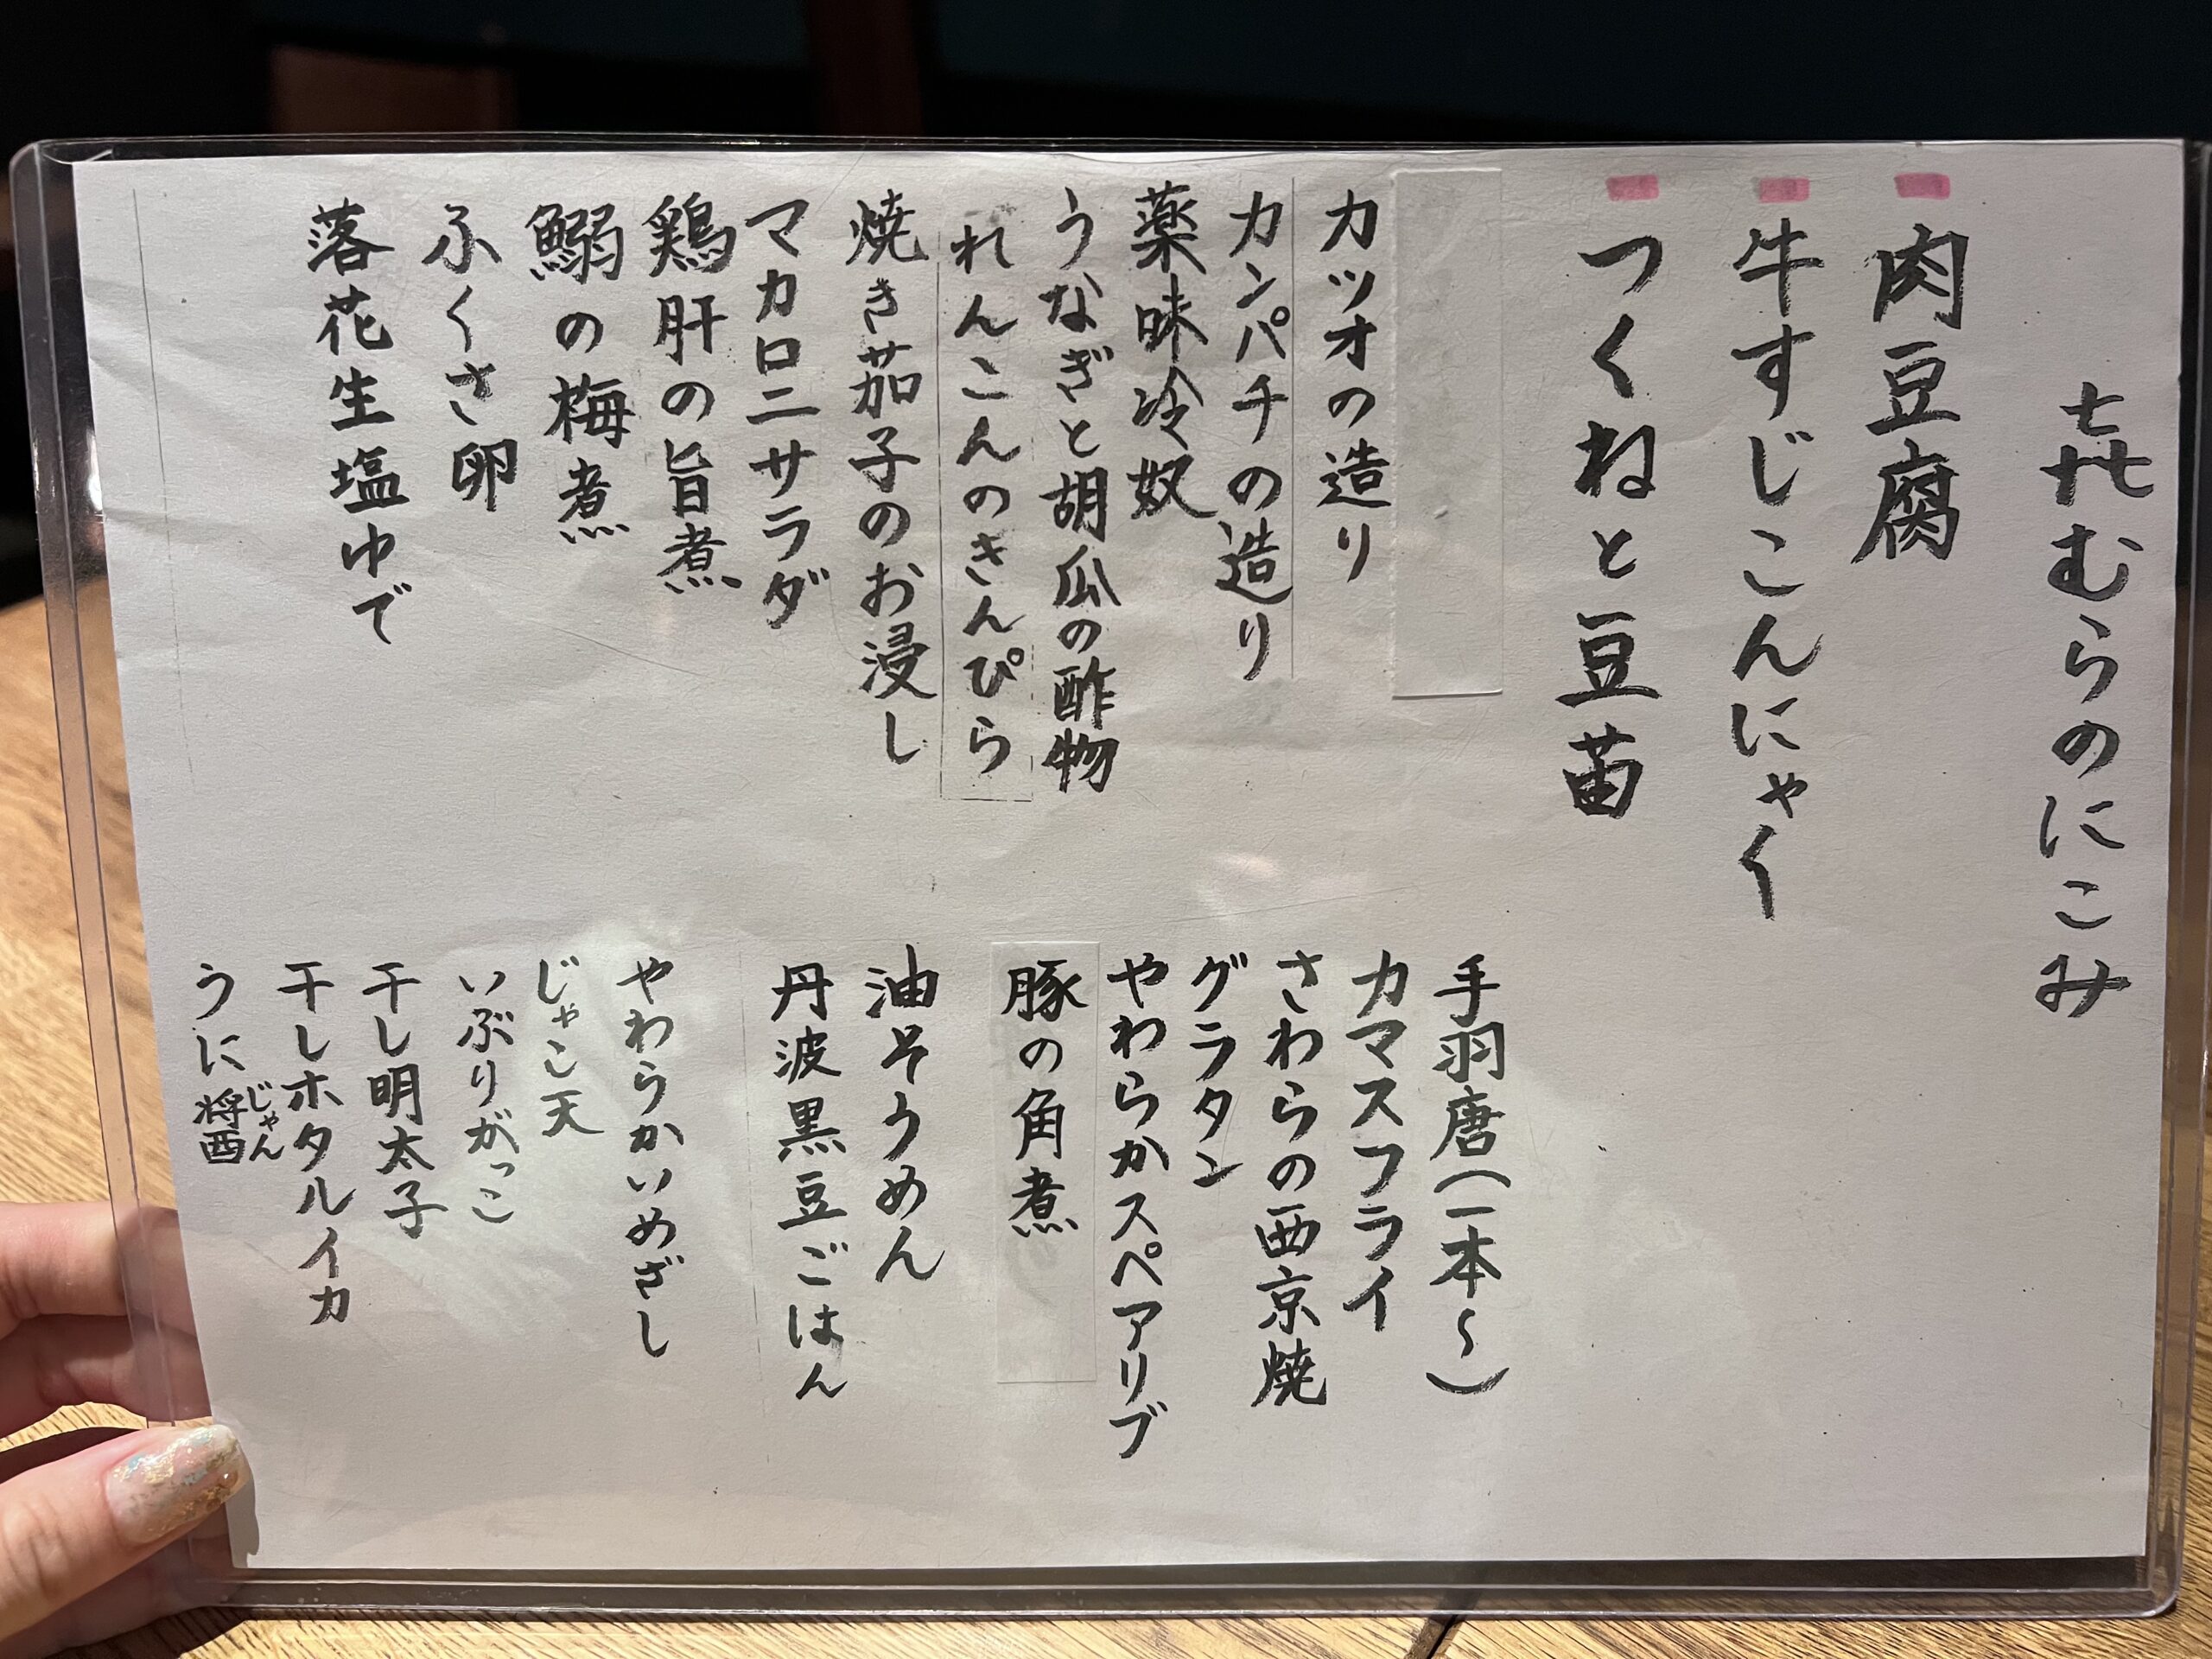 㐂むらのにこみ
肉豆腐
牛すじこんにゃく
つくねと豆苗
カツオの造り
カンパチの造り
薬味冷奴
うなぎと胡瓜の酢物
れんこんのきんぴら
焼き茄子のお浸し
マカロニサラダ
鶏肝の旨煮
鰯の梅煮
ふくさ卵
落花生塩ゆで
手羽唐(一本〜)
カマスフライ
さわらの西京焼
グラタン
やわらかスペアリブ
豚の角煮
油そうめん
丹波黒豆ごはん
やわらかいめざし
じゃこ天
いぶりがっこ
干し明太子
干しホタルイカ
うに醤
じゃん